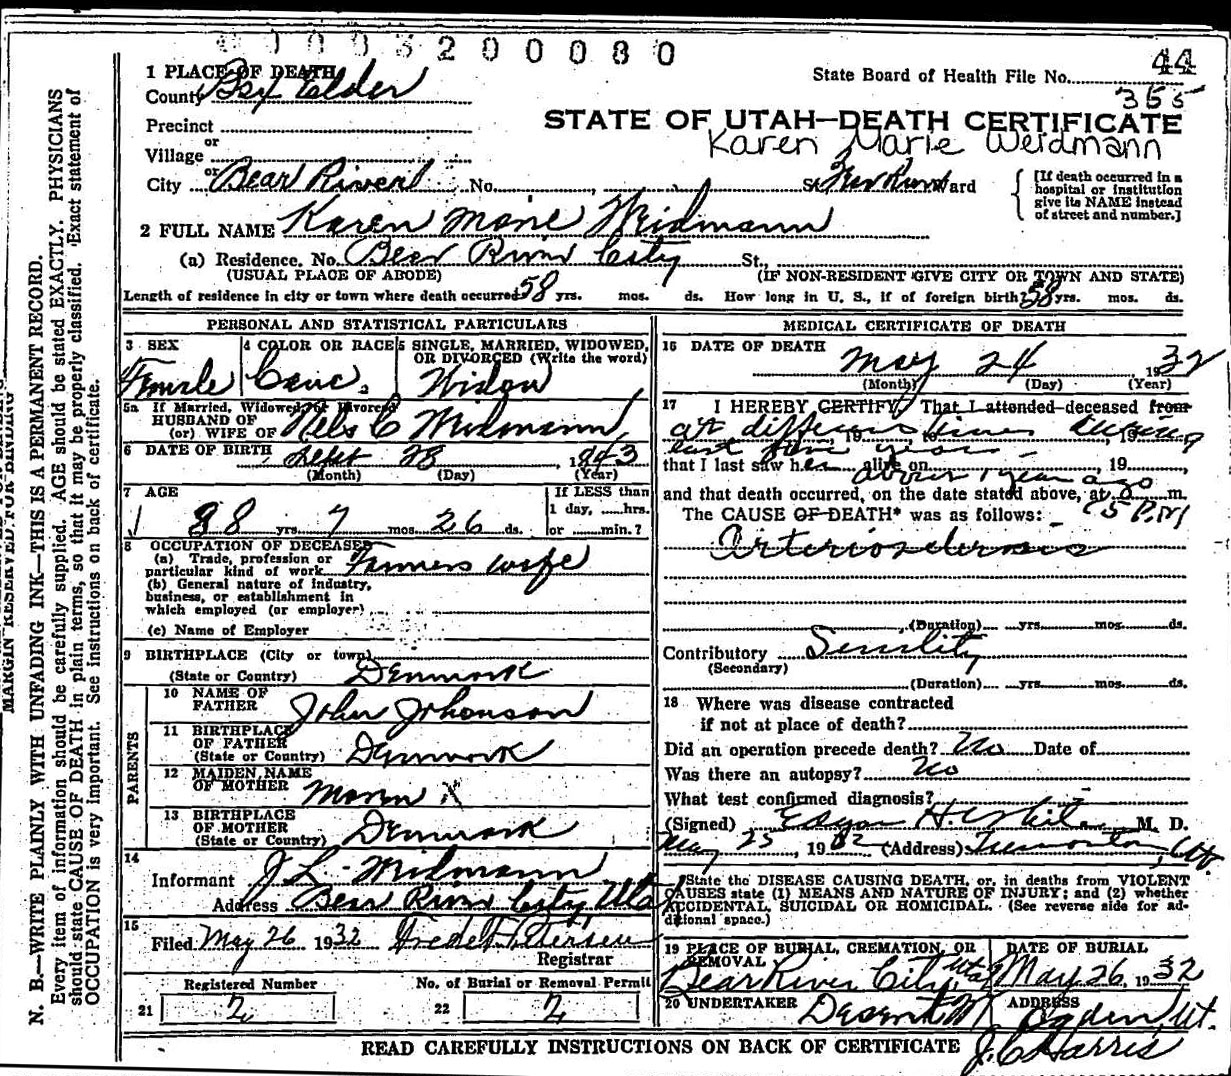 0003200080
44
State Board of Health File No.
355
1 PLACE OF DEATH
County Box Elder
STATE OF UTAH—DEATH CERTIFICATE
Karen Marie Weidmann
Precinct
or
Village
or
City Bear River No. St. Ward
[If death occurred in a hospital or institution give its NAME instead of street and number.]
2 FULL NAME Karen Marie Widmann
(a) Residence. No. Bear River City St.,
(USUAL PLACE OF ABODE) (IF NON-RESIDENT GIVE CITY OR TOWN AND STATE)
Length of residence in city or town where death occurred 58 yrs. mos. ds. How long in U. S., if of foreign birth? 58 yrs. mos. ds.
PERSONAL AND STATISTICAL PARTICULARS
3 SEX 4 COLOR OR RACE 5 SINGLE, MARRIED, WIDOWED, OR DIVORCED (Write the word)
Female Cauc. Widow
5a If Married, Widowed, or Divorced
HUSBAND OF
(or) WIFE OF Nels C Widmann
6 DATE OF BIRTH Sept 28, 1843
(Month) (Day) (Year)
7 AGE If LESS than
1 day, hrs.
88 yrs. 7 mos. 26 ds. or min.?
8 OCCUPATION OF DECEASED
(a) Trade, profession or
particular kind of work Farmers wife
(b) General nature of industry,
business, or establishment in
which employed (or employer)
(c) Name of Employer
9 BIRTHPLACE (City or town)
(State or Country) Denmark
PARENTS
10 NAME OF
FATHER John Johanson
11 BIRTHPLACE
OF FATHER
(State or Country) Denmark
12 MAIDEN NAME
OF MOTHER Maren X
13 BIRTHPLACE
OF MOTHER
(State or Country) Denmark
14
Informant J L Widmann
Address Bear River City Utah
15
Filed May 26 1932 Fredk Petersen
Registrar
Registered Number No. of Burial or Removal Permit
21 2 22 2
MEDICAL CERTIFICATE OF DEATH
16 DATE OF DEATH
May 24 1932
(Month) (Day) (Year)
17 I HEREBY CERTIFY, That I attended deceased from
at different times during
, 19 , to , 19
last few years
that I last saw her alive on , 19
about 1 year ago
and that death occurred, on the date stated above, at m.
The CAUSE OF DEATH* was as follows: P.M
Arteriosclerosis
(Duration) yrs. mos. ds.
Contributory Senility
(Secondary)
(Duration) yrs. mos. ds.
18 Where was disease contracted
if not at place of death?
Did an operation precede death? No Date of
Was there an autopsy? No
What test confirmed diagnosis?
(Signed) M. D.
May 25, 1932 (Address) Tremonton, Ut.
*State the DISEASE CAUSING DEATH, or, in deaths from VIOLENT
CAUSES state (1) MEANS AND NATURE OF INJURY; and (2) whether
ACCIDENTAL, SUICIDAL OR HOMICIDAL. (See reverse side for additional space.)
19 PLACE OF BURIAL, CREMATION, OR REMOVAL DATE OF BURIAL
Bear River City, Utah May 26, 1932
20 UNDERTAKER ADDRESS
Ogden Ut.
J. C Harris
READ CAREFULLY INSTRUCTIONS ON BACK OF CERTIFICATE
MARGIN RESERVED FOR BINDING
N. B.—WRITE PLAINLY WITH UNFADING INK—THIS IS A PERMANENT RECORD.
Every item of information should be carefully supplied. AGE should be stated EXACTLY. PHYSICIANS
should state CAUSE OF DEATH in plain terms, so that it may be properly classified. Exact statement of
OCCUPATION is very important. See instructions on back of certificate.